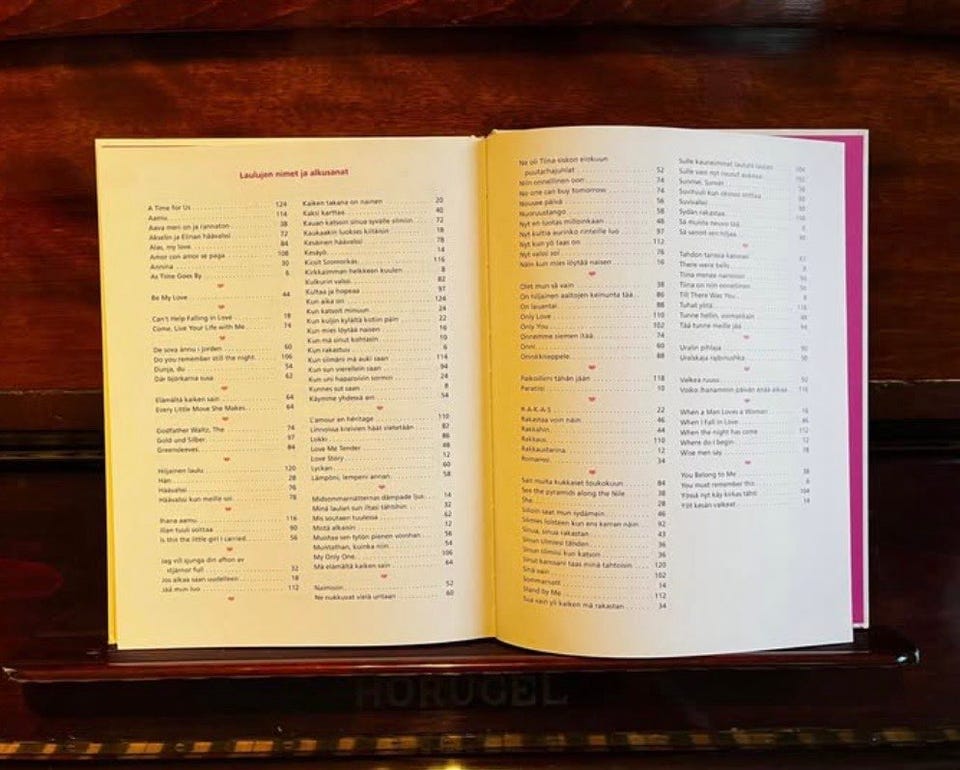 Laulujen nimet ja alkusanat
A Time for Us 124
Aamu 114
Aava meri on ja rannaton 38
Akselin ja Elinan häävalssi 72
Alas, my love 84
Amor con amor se paga 108
Annina 30
As Time Goes By 6
Be My Love 44
Can't Help Falling in Love 18
Come, Live Your Life with Me 74
De sova ännu i jorden 60
Do you remember still the night 106
Dunja, du 54
Där björkarna susa 62
Elämältä kaiken sain 64
Every Little Move She Makes 64
Godfather Waltz, The 74
Gold und Silber 97
Greensleeves 84
Hiljainen laulu 120
Hän 28
Häävalssi 76
Häävalssi kun meille soi 78
Ihana aamu 116
Illan tuuli soittaa 90
Is this the little girl I carried 56
Jag vill sjunga din afton av
stjärnor full 32
Jos alkaa saan uudelleen 18
Jää mun luo 112
Kaiken takana on nainen 20
Kaksi karttaa 40
Kauan katsoin sinua syvälle silmiin 72
Kaukaakin luokses kiitäisin 18
Kesäinen häävalssi 78
Kesäyö 14
Kicsit Szomorkás 116
Kirkkaimman hetkeen kuulen 8
Kulkurin valssi 82
Kultaa ja hopeaa 97
Kun aika on 124
Kun katsoit minuun 24
Kun kuljin kylältä kotiin päin 22
Kun mies löytää naisen 16
Kun mä sinut kohtasin 10
Kun rakastuu 6
Kun silmäni mä auki saan 114
Kun sun vierellein saan 94
Kun uni hapatoivin sormin 24
Kunnes sut saan 8
Käymme yhdessä ain 54
L'amour en héritage 110
Linnoissa kreivien häät vietetään 82
Lokki 86
Love Me Tender 48
Love Story 12
Lyckan 60
Lämpöni, lempeni annan 58
Midsommarnätternas dämpade ljus 14
Minä laulan sun iltasi tähtihin 32
Mis soutaen tuulessa 62
Mistä alkaisin 12
Muistaa sen tytön pienen voinhan 56
Muistathan, kuinka niin 54
My Only One 106
Mä elämältä kaiken sain 64
Naimisiin 52
Ne nukkuvat vielä untaan 60
Ne oli Tiina siskon elokuun
puutarhajuhlat 52
Niin onnellinen oon 74
No one can buy tomorrow 74
Nousee päivä 56
Nuoruustango 58
Nyt en luotas milloinkaan 48
Nyt kultia aurinko rinteille luo 97
Nyt kun yö taas on 112
Nyt valssi soi 76
Näin kun mies löytää naisen 16
Olet mun sä vain 38
On hiljainen aaltojen keinunta tää 86
On lauantai 88
Only Love 110
Only You 102
Onnemme siemen itää 74
Onni 60
Onnenkiseppele 88
Paikoillesi tähän jään 118
Paratiisi 10
R-A-K-A-S 22
Rakastaa voin näin 46
Rakkahin 44
Rakkaus 110
Rakkaustarina 12
Romanssi 34
Sait multa kukkaset toukokuun 84
See the pyramids along the Nile 38
She 28
Silloin saat mun sydämein 46
Silmies loisteen kun ens kerran näin 92
Sinua, sinua rakastan 43
Sinun silmiesi tähden 36
Sinun silmiisi kun katson 36
Sinut kanssani taas minä tahtoisin 120
Sinä vain 102
Sommarnatt 14
Stand by Me 112
Sua vain yli kaiken mä rakastan 34
Sulle kauneimmat lauluni laulan 104
Sulle vain nyt nousut aukeaa
Sunnat, Sunnat
Suvituuli kun oksissa soittaa
Suvivalssi
Sydän rakastaa
Sä muista neuvo tää
Sä sanoit sen hiljaa
Tahdon tanssia kanssasi
There were bells 8
Tiina menee naimisiin
Tiina on niin onnellinen
Till There Was You 8
Tuhat yötä 118
Tunne hellin, voimallisin 48
Tää tunne meille jää 94
Uralin pihlaja 50
Uralskaja rjabinushka 50
Valkea ruusu 92
Voiko ihanammin päivän enää alkaa 116
When a Man Loves a Woman 16
When I Fall in Love 46
When the night has come 112
Where do I begin 12
Wise men say 18
You Belong to Me 38
You must remember this 6
Yössä nyt käy kirkas tähti 104
Yöt kesän valkeat 14
HORUGEL